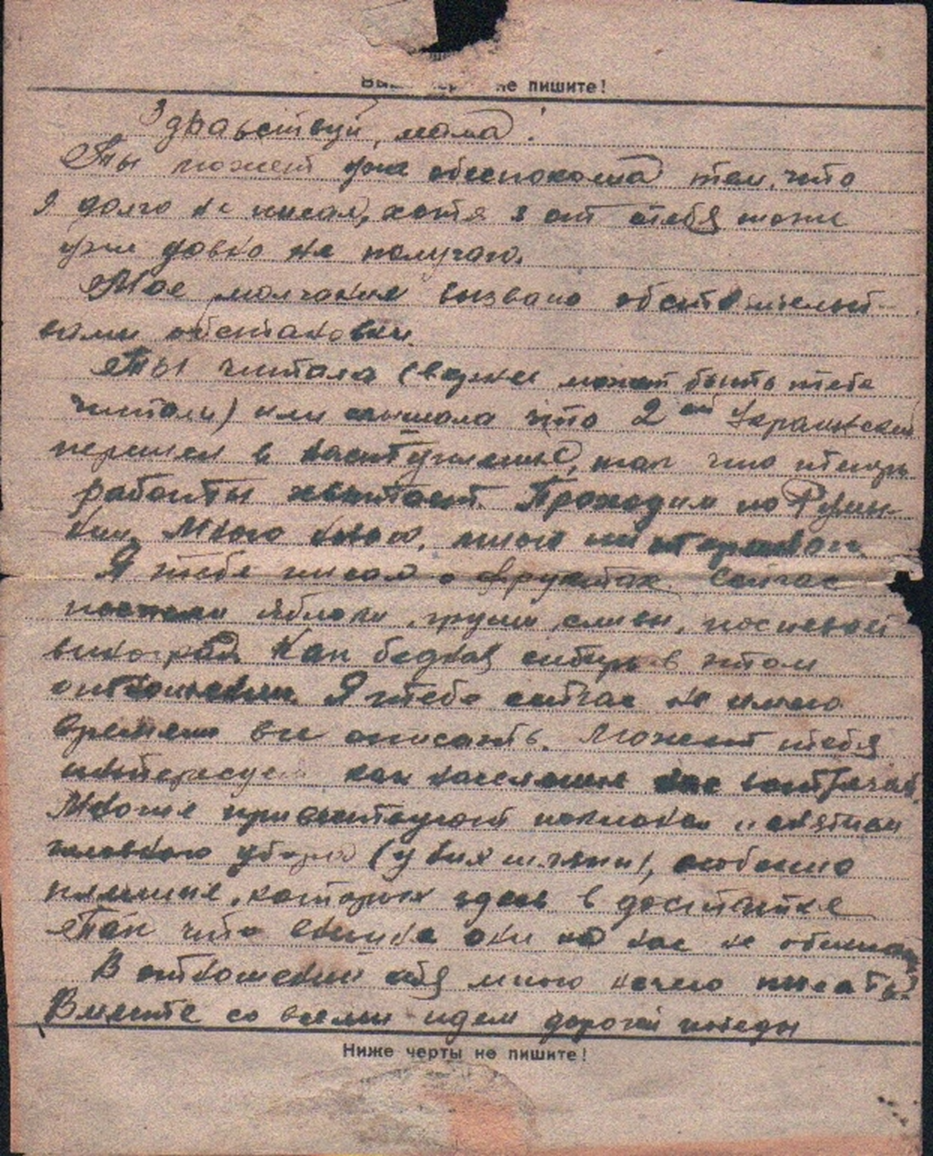 Выше черты не пишите!
Здравствуй, мама!
Ты может уже обеспокоена тем, что
я долго не писал, хотя я от тебя тоже
уже давно не получаю.
Мое молчание вызвано обстоятельст-
вами обстановки.
Ты читала (вернее может быть тебе
читали) или слышала что 2ой Украинский
перешел в наступление, так что теперь
работы хватает. Проходим по Румы-
нии. Много
Я тебе писал о фруктах. Сейчас
поспели яблоки, груши, сливы, поспевает
виноград. Как бедная сибирь в этом
отношении. Я тебе сейчас не имею
времени все описать. Может тебя
интересует как население нас встречает.
Многие приветствуют поклоном и снятием
головного убора (у них шляпы), особенно
пленные, которых здесь в достатке
Так что они на нас не
В отношении себя много нечего писать.
Вместе со всеми идем дорогой победы
Ниже черты не пишите!